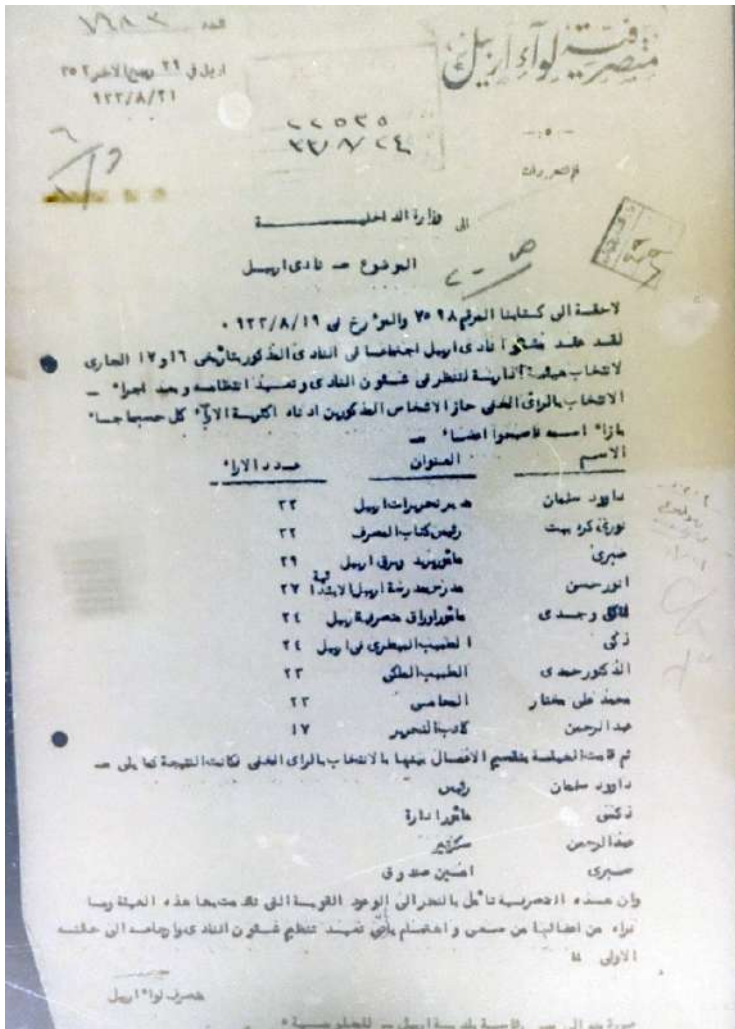 متصرفية لوآء اربيل
العدد
اربيل في ٢٩ ربيع الاخر ٣٥٢
٩٣٣/٨/٢١
٢٢٥٣٥
٣٣/٨/٢٤
قلم التحريرات
الى وزارة الداخليـــة
الموضوع – نادى اربيـل
لاحقـة الى كـتابنا المرقم ٧٥٩٨ والمؤرخ فى ٩٣٣/٨/١٩ ٠
لقـد عقـد منتسبوا نادى اربيل اجتماعـا فى النادى المذكور بتاريخى ١٦ و ١٧ الجارى
لانتخاب هيئـة ادارية لتنظر فى شـئون النادى وتعيـد انتظامـه وبعـد اجراء –
الانتخاب بالراى الخفى حاز الاشخاص المذكورين ادناه اكثريـة الآراء كل حسبما جـاء
بازاء اسمـه فاصبحوا اعضـاء –
الاسم العنوان عـدد الاراء
داوود سلمان مدير تحريرات اربيل ٣٣
نورى كرد بيت رئيس كتاب المصرف ٣٢
صبرى مأمور بريد وبرق اربيل ٢٩
انور حسن مدرس مدرسة اربيل الابتدائية ٢٧
وجـدى مأمور اوراق متصرفية اربيل ٢٤
زكى الطبيب البيطرى فى اربيل ٢٤
الدكتور حمدى الطبيب الملكى ٢٣
محمد على مختار المحامـى ٢٣
عبد الرحمن كاتب التحرير ١٧
ثم قامت الهيئـة بتقسيم الاعمال بينها بالانتخاب بالراى الخفى فكانت النتيجة كما يلى –
داوود سلمان رئيس
زكـى مأمور ادارة
عبد الرحمن سكرتير
صبـرى امـين صندوق
وان هـذه المتصرفية تأمل بالنظر الى الوعود القويـة التى تقدمت بها هذه الهيئة وبما
نراه من اعضائها من سـعى واهتمام بأن تعيـد تنظيم شـئون النادى وارجاعـه الى حالتـه
الاولى
متصرف لواء اربيل